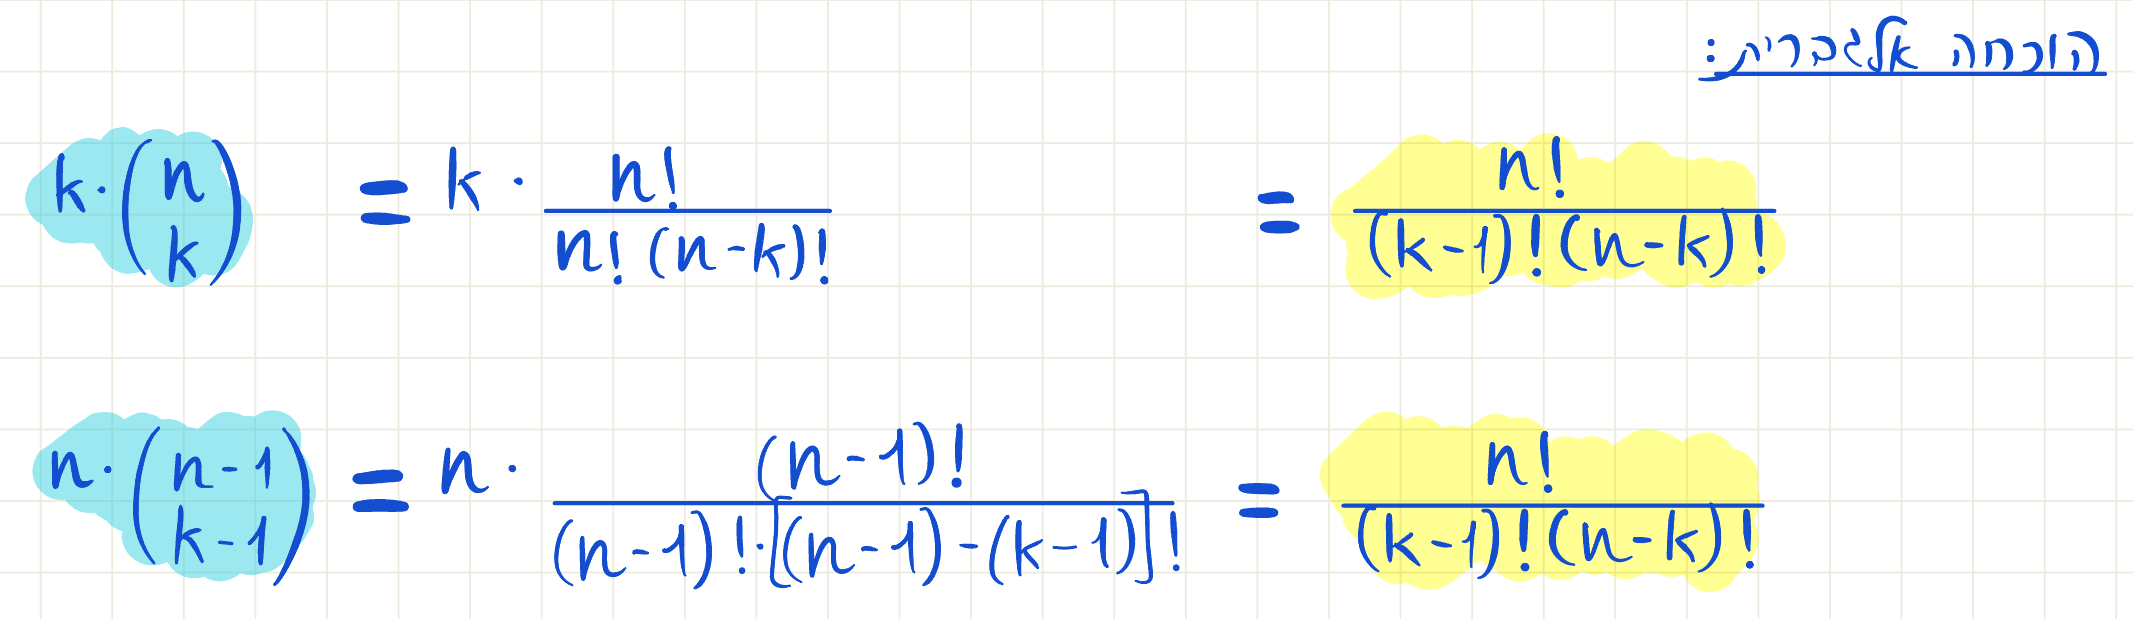 הוכחה אלגברית:
k · (n k) = k · n! / n! (n-k)! = n! / (k-1)! (n-k)!
n · (n-1 k-1) = n · (n-1)! / (n-1)! · [(n-1)-(k-1)]! = n! / (k-1)! (n-k)!